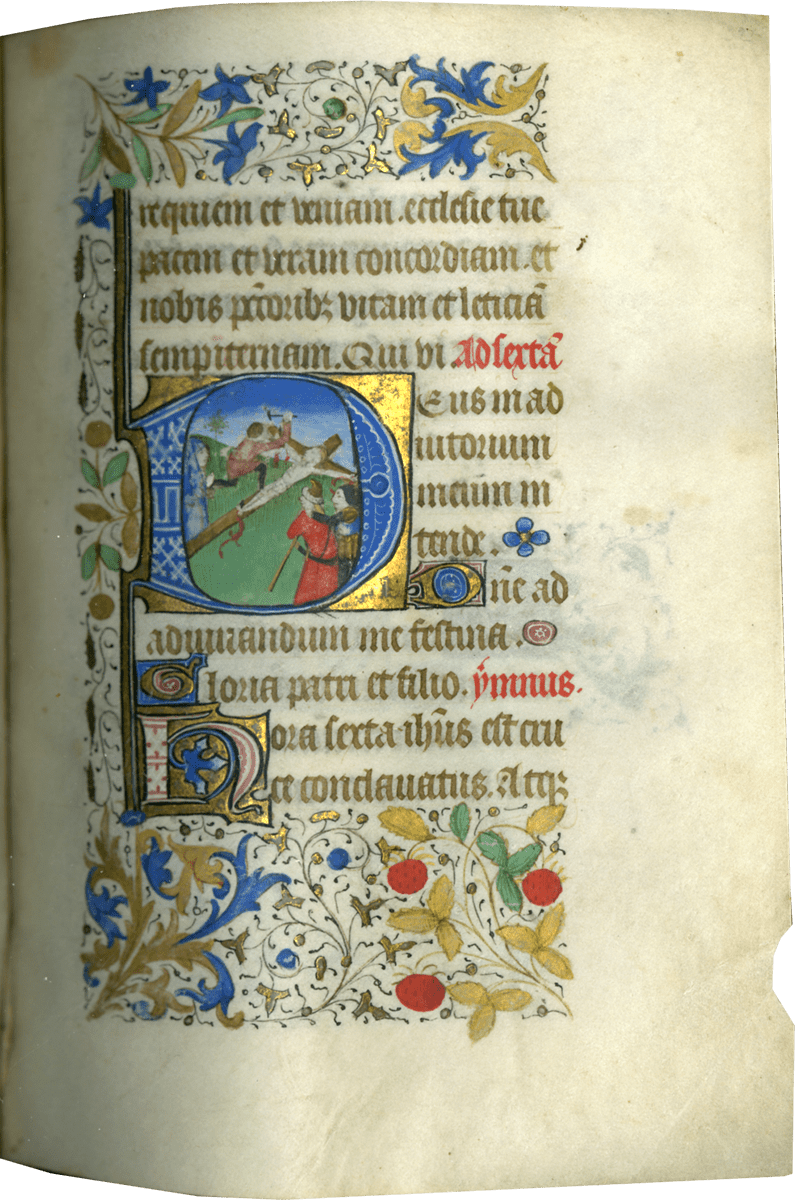 requiem et veniam. ecclesie tue
pacem et veram concordiam. et
nobis pc̄toribꝫ vitam et leticiā
sempiternam. Qui vi Ad sextā
Deus in ad
iutorium
meum in
tende.
Dn̄e ad
adiuuandum me festina.
Gloria patri et filio. ẏmnus.
Hora sexta ih̄us est cru
ce conclauatus. Atqꝫ